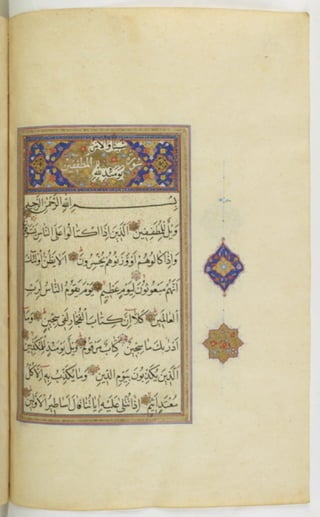 شيئا والأمر
سورة المطففين
يومئذ لله
بسم الله الرحمن الرحيم
ويل للمطففين الذين اذا اكتالوا على الناس يستوفون
واذا كالوهم او وزنوهم يخسرون الا يظن اولئك
انهم مبعوثون ليوم عظيم يوم يقوم الناس لرب
العالمين كلا ان كتاب الفجار لفى سجين وما
ادريك ما سجين كتاب مرقوم ويل يومئذ للمكذبين
الذين يكذبون بيوم الدين وما يكذب به الا كل
معتد اثيم اذا تتلى عليه اياتنا قال اساطير الاولين